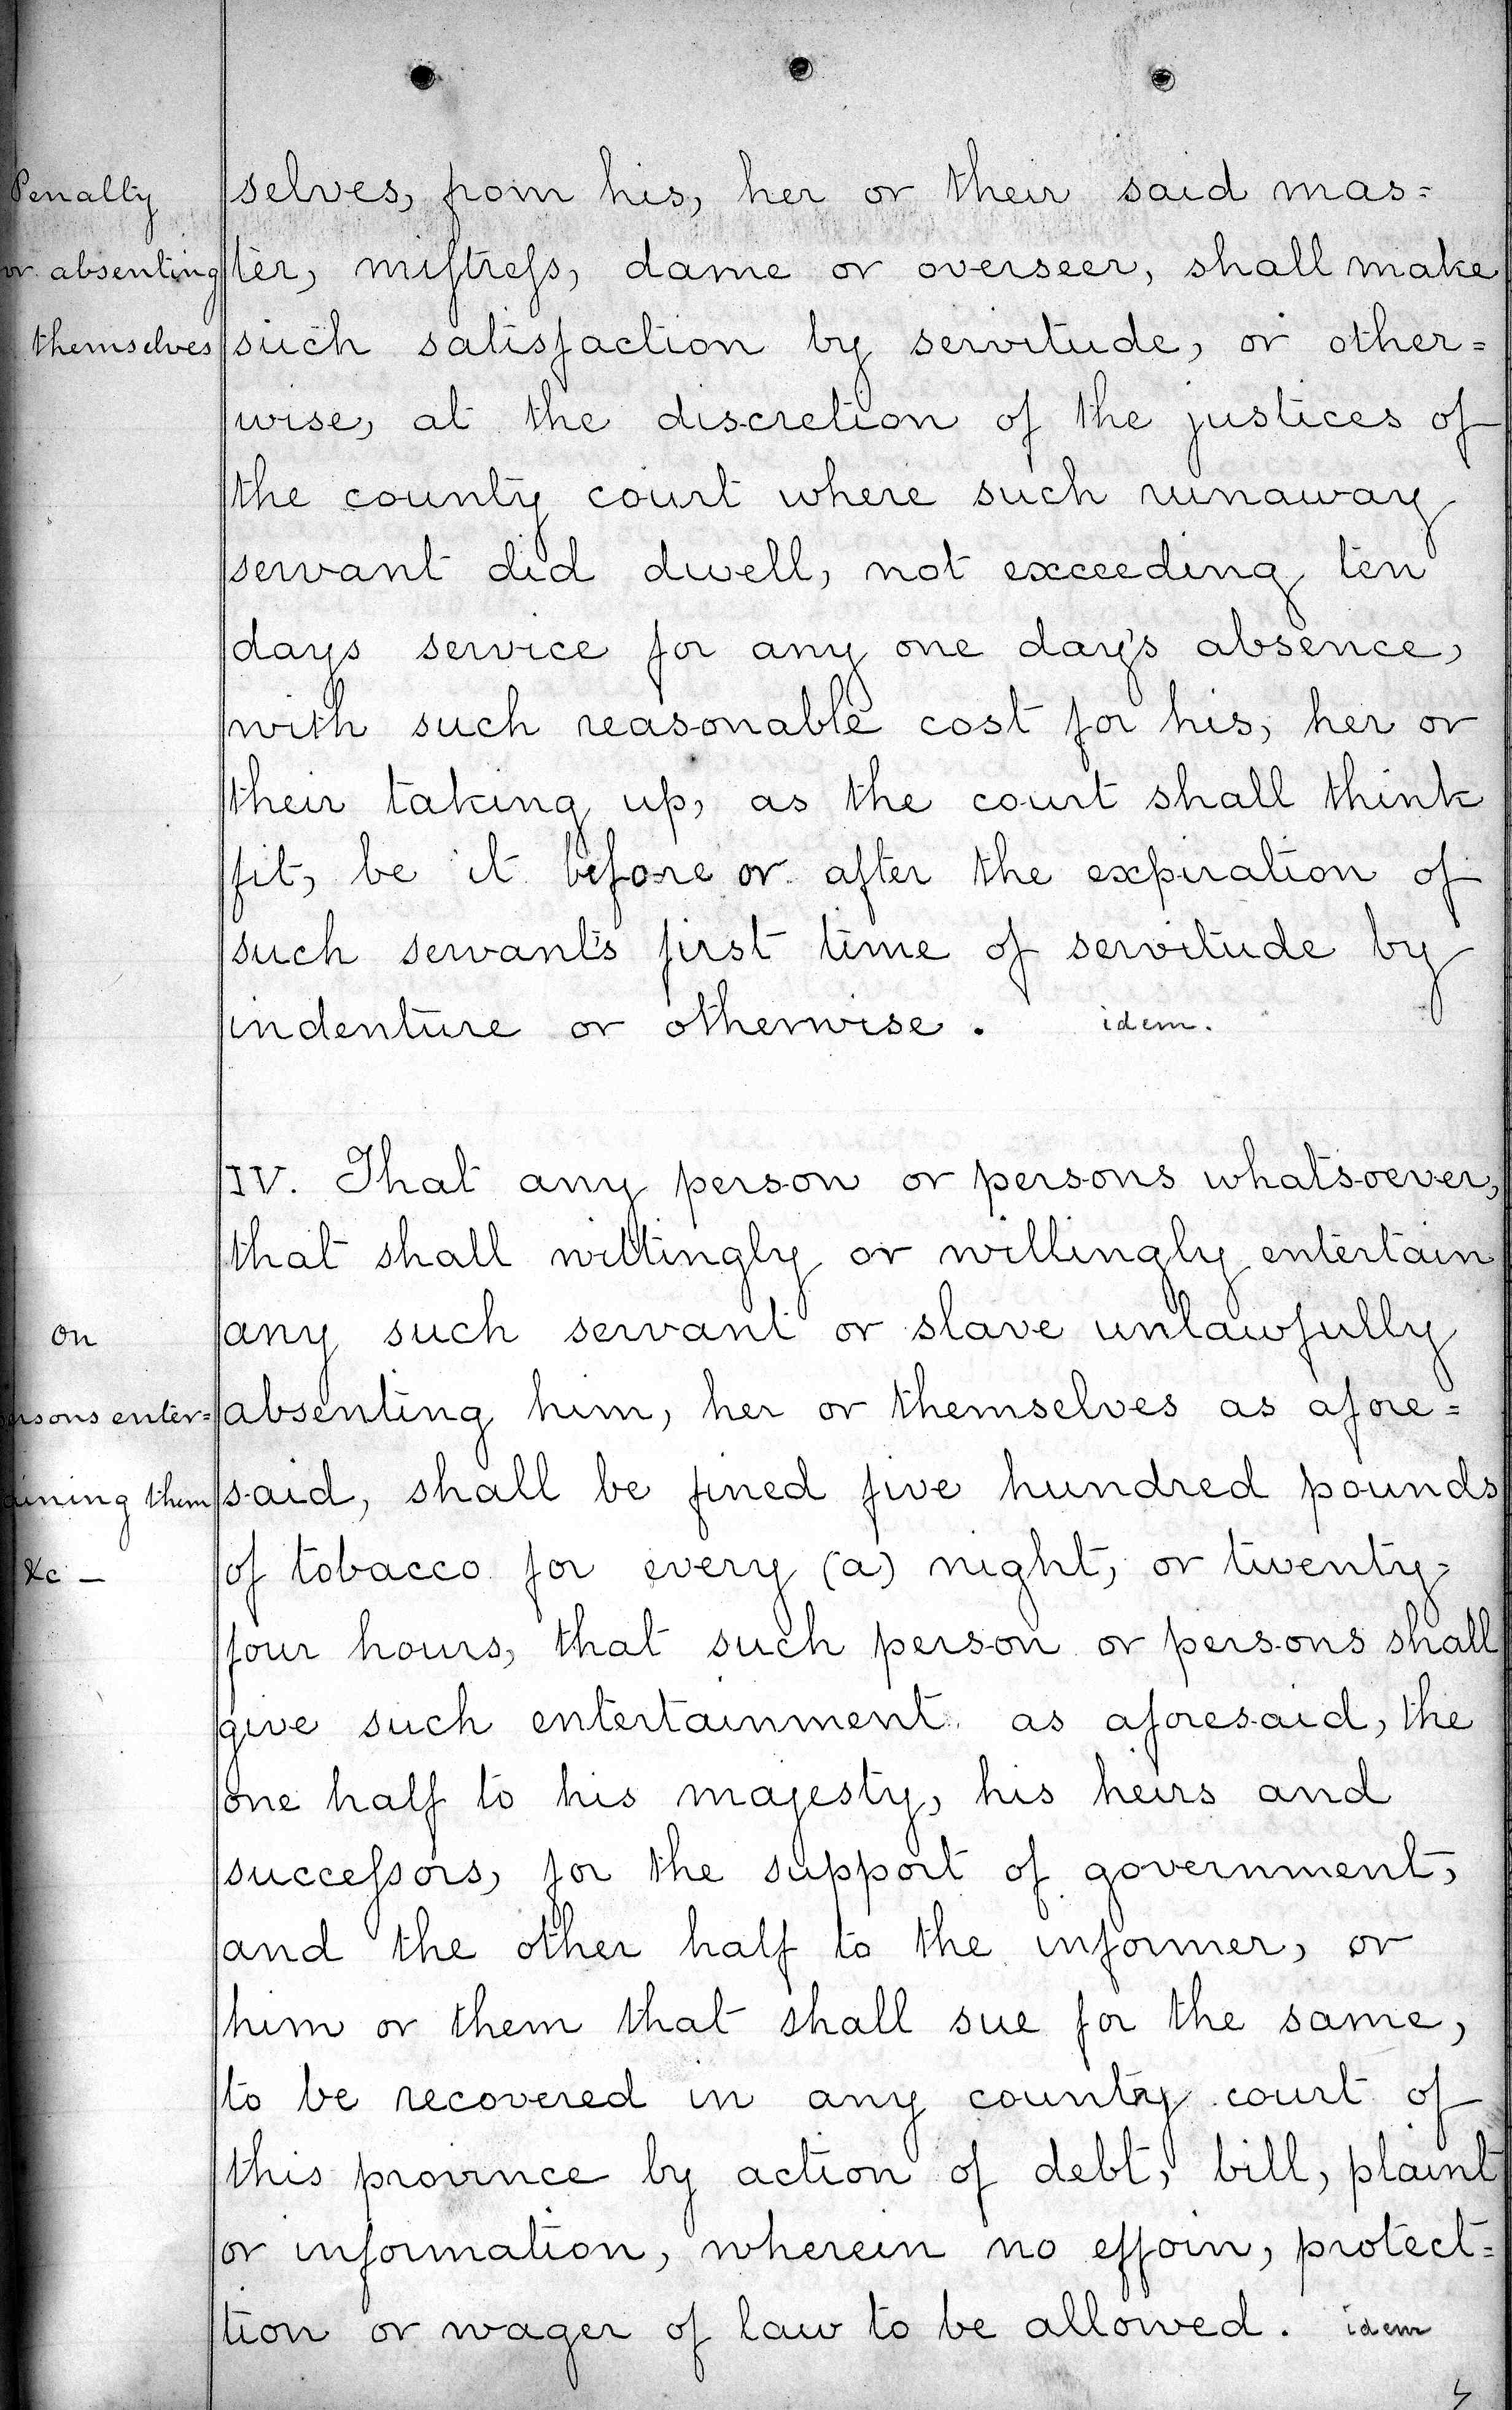 Penalty
or absenting
themselves
selves, from his, her or their said mas=
ter, miſtreſs, dame or overseer, shall make
such satisfaction by servitude, or other=
wise, at the discretion of the justices of
the county court where such runaway
servant did dwell, not exceeding ten
days service for any one day's absence,
with such reasonable cost for his, her or
their taking up, as the court shall think
fit, be it before or after the expiration of
such servant's first time of servitude by
indenture or otherwise. idem.
IV. That any person or persons whatsoever,
that shall wittingly or willingly entertain
on
any such servant or slave unlawfully
ersons enter=
absenting him, her or themselves as afore=
aining them
said, shall be fined five hundred pounds
&c —
of tobacco for every (a) night, or twenty-
four hours, that such person or persons shall
give such entertainment as aforesaid, the
one half to his majesty, his heirs and
succeſsors, for the support of government,
and the other half to the informer, or
him or them that shall sue for the same,
to be recovered in any county court of
this province by action of debt, bill, plaint
or information, wherein no eſſoin, protect=
tion or wager of law to be allowed. idem